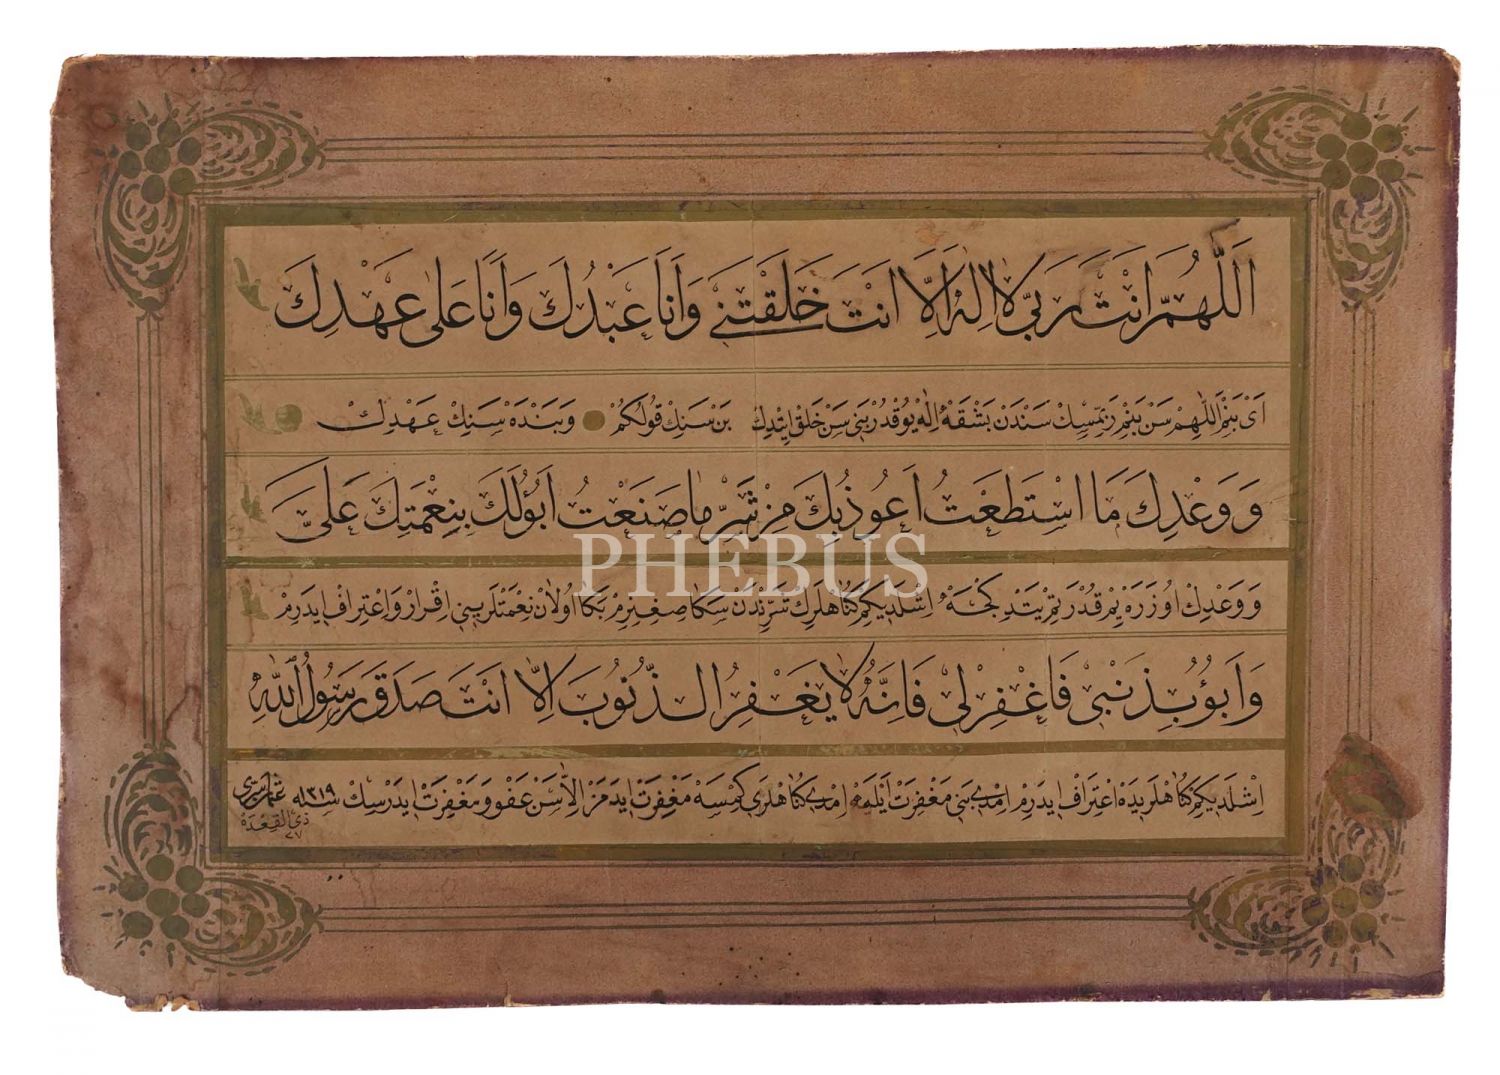 اَللّٰهُمَّ اَنْتَ رَبِّي لَا اِلٰهَ اِلَّا اَنْتَ خَلَقْتَنِي وَاَنَا عَبْدُكَ وَاَنَا عَلٰى عَهْدِكَ
اَىْ بَنِمْ اَللّٰهِمْ سَنْ بَنِمْ رَبِّمْسِكْ سَنْدَنْ بَشْقَهْ اِلٰهْ يُوقْدُرْ بَنِى سَنْ خَلْقْ اِيتْدِكْ بَنْ سَنِكْ قُولُكُمْ وَبَنْدَهْ سَنِكْ عَهْدِكْ
وَوَعْدِكَ مَا اسْتَطَعْتُ اَعُوذُبِكَ مِنْ شَرِّ مَا صَنَعْتُ اَبُؤُلَكَ بِنِعْمَتِكَ عَلَىَّ
PHEBUS
وَوَعْدِكْ اُوزَرَهْ يِمْ قُدْرَتِمْ يَتْدِكْجَهْ اِشْلَدِيكِمْ كُنَاهْلَرِكْ شَرِّنْدَنْ سَكَا صِغِنِرِمْ بَكَا اُولَانْ نِعْمَتْلَرِيِكِى اِقْرَارْ وَاِعْتِرَافْ اِيدَرِمْ
وَاَبُؤُ بِذَنْبِي فَاغْفِرْلِي فَاِنَّهُ لَا يَغْفِرُ الذُّنُوبَ اِلَّا اَنْتَ صَدَقَ رَسُولُ اللّٰه
اِشْلَدِيكِمْ كُنَاهْلَرِيدَهْ اِعْتِرَافْ اِيدَرِمْ اِمْدِى بَنِى مَغْفِرَتْ اَيْلَهْ اِمْدِى كُنَاهْلَرِى كِمْسَهْ مَغْفِرَتْ اِيدَمَزْ اِلَّا سَنْ عَفْو وَمَغْفِرَتْ اِيدَرْسِكْ سنه ١٣١٩
ذى القعده
٢٧